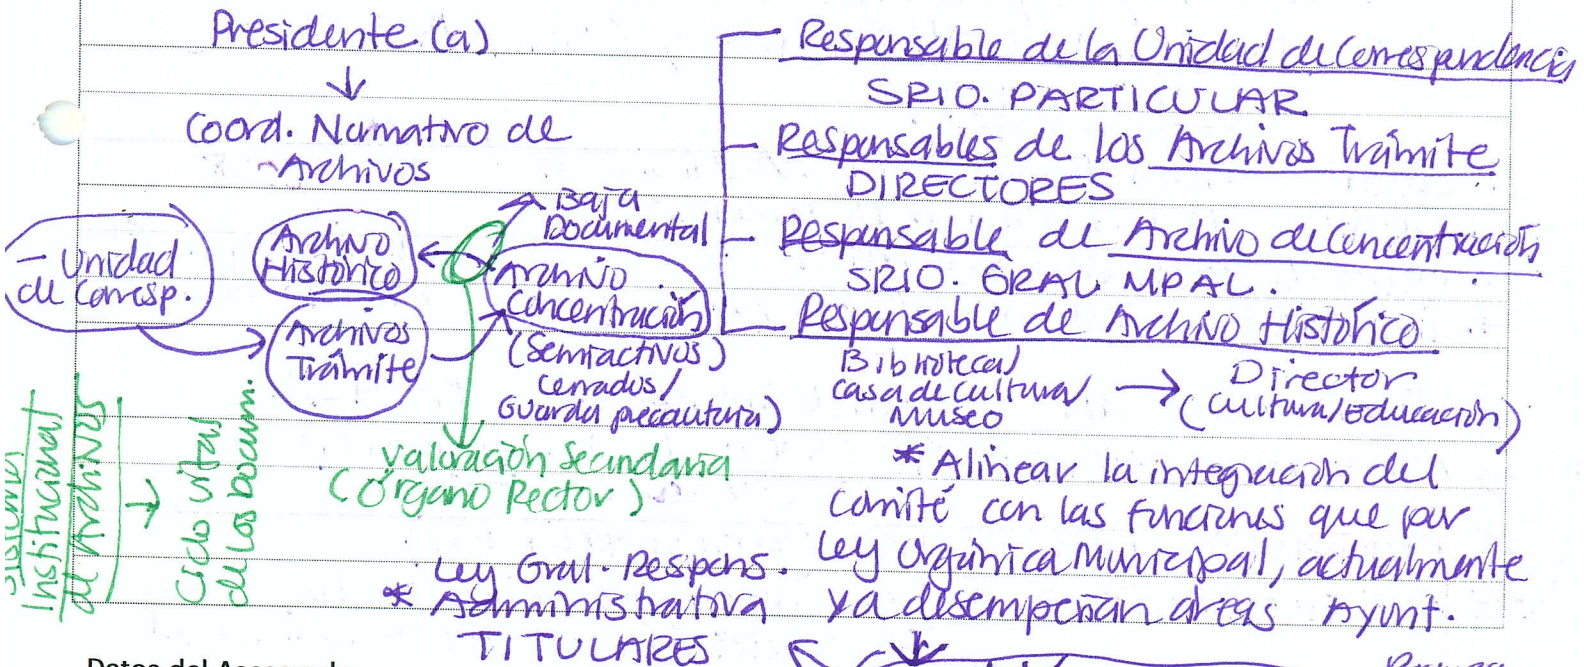 Presidente (a)
Coord. Normativo de
Archivos
- Unidad
de Corresp.
Archivo
Histórico
Archivos
Trámite
Baja
Documental
Archivo
Concentración
(Semiactivos)
Cerrados/
Guarda precautoria)
Valoración Secundaria
(Órgano Rector)
Sistema
Institucional
de Archivos
Ciclo vital
de los Docum.
Responsable de la Unidad de Correspondencia
SRIO. PARTICULAR
Responsables de los Archivos Trámite
DIRECTORES
Responsable de Archivo de Concentración
SRIO. GRAL. MPAL.
Responsable de Archivo Histórico
Biblioteca/
Casa de Cultura/
Museo
Director
(Cultura/Educación)
* Alinear la integración del
Comité con las funciones que por
Ley Orgánica Municipal, actualmente
ya desempeñan áreas Ayunt.
Ley Gral. Respons.
* Administrativa
TITULARES